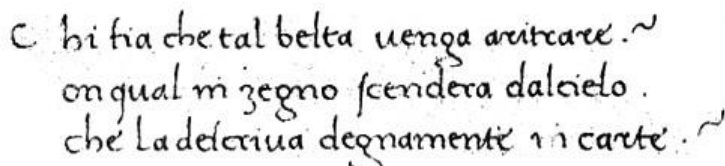 C hi fia che tal belta uenga aritrare.~
on qual in zegno scendera dalcielo .
che La descriua degnamente in carte .~